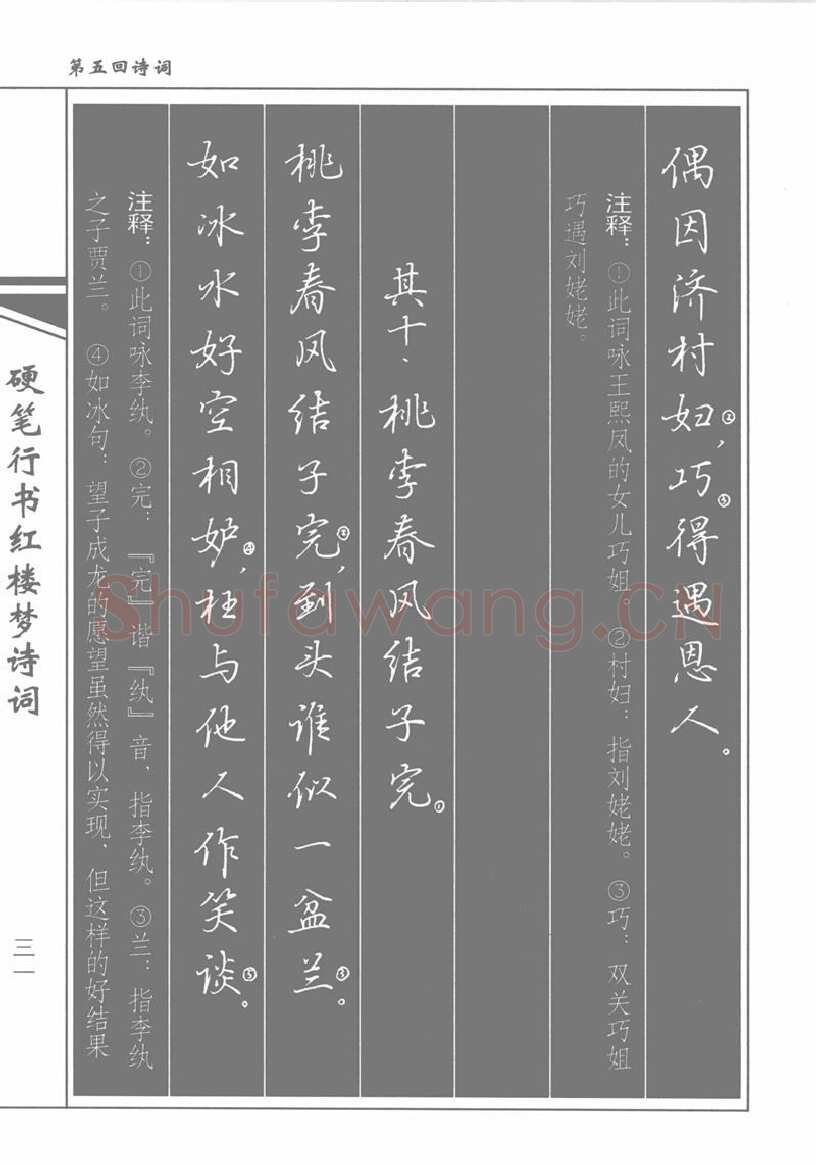 第五回诗词
偶因济村妇②，巧③得遇恩人。
注释：①此词咏王熙凤的女儿巧姐 ②村妇：指刘姥姥。 ③巧：双关巧姐
巧遇刘姥姥。
其十、桃李春风结子完①
桃李春风结子完②，到头谁似一盆兰③。
如冰水好空相妒④，枉与他人作笑谈⑤。
注释：①此词咏李纨。 ②完：『完』谐『纨』音，指李纨。 ③兰：指李纨
之子贾兰。 ④如冰句：望子成龙的愿望虽然得以实现，但这样的好结果
硬笔行书红楼梦诗词
三一
Shufawang.CN